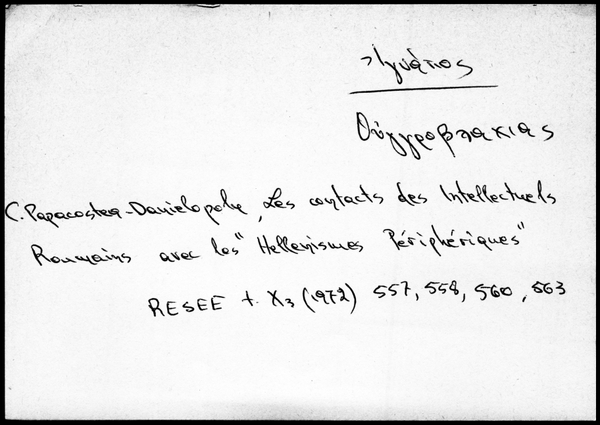 Ἰγνάτιος
Οὑγγροβλαχίας
C. Papacostea-Danielopolu, Les contacts des Intellectuels
Roumains avec les "Hellenismes Périphériques"
RESEE t. X3 (1972) 557, 558, 560, 563